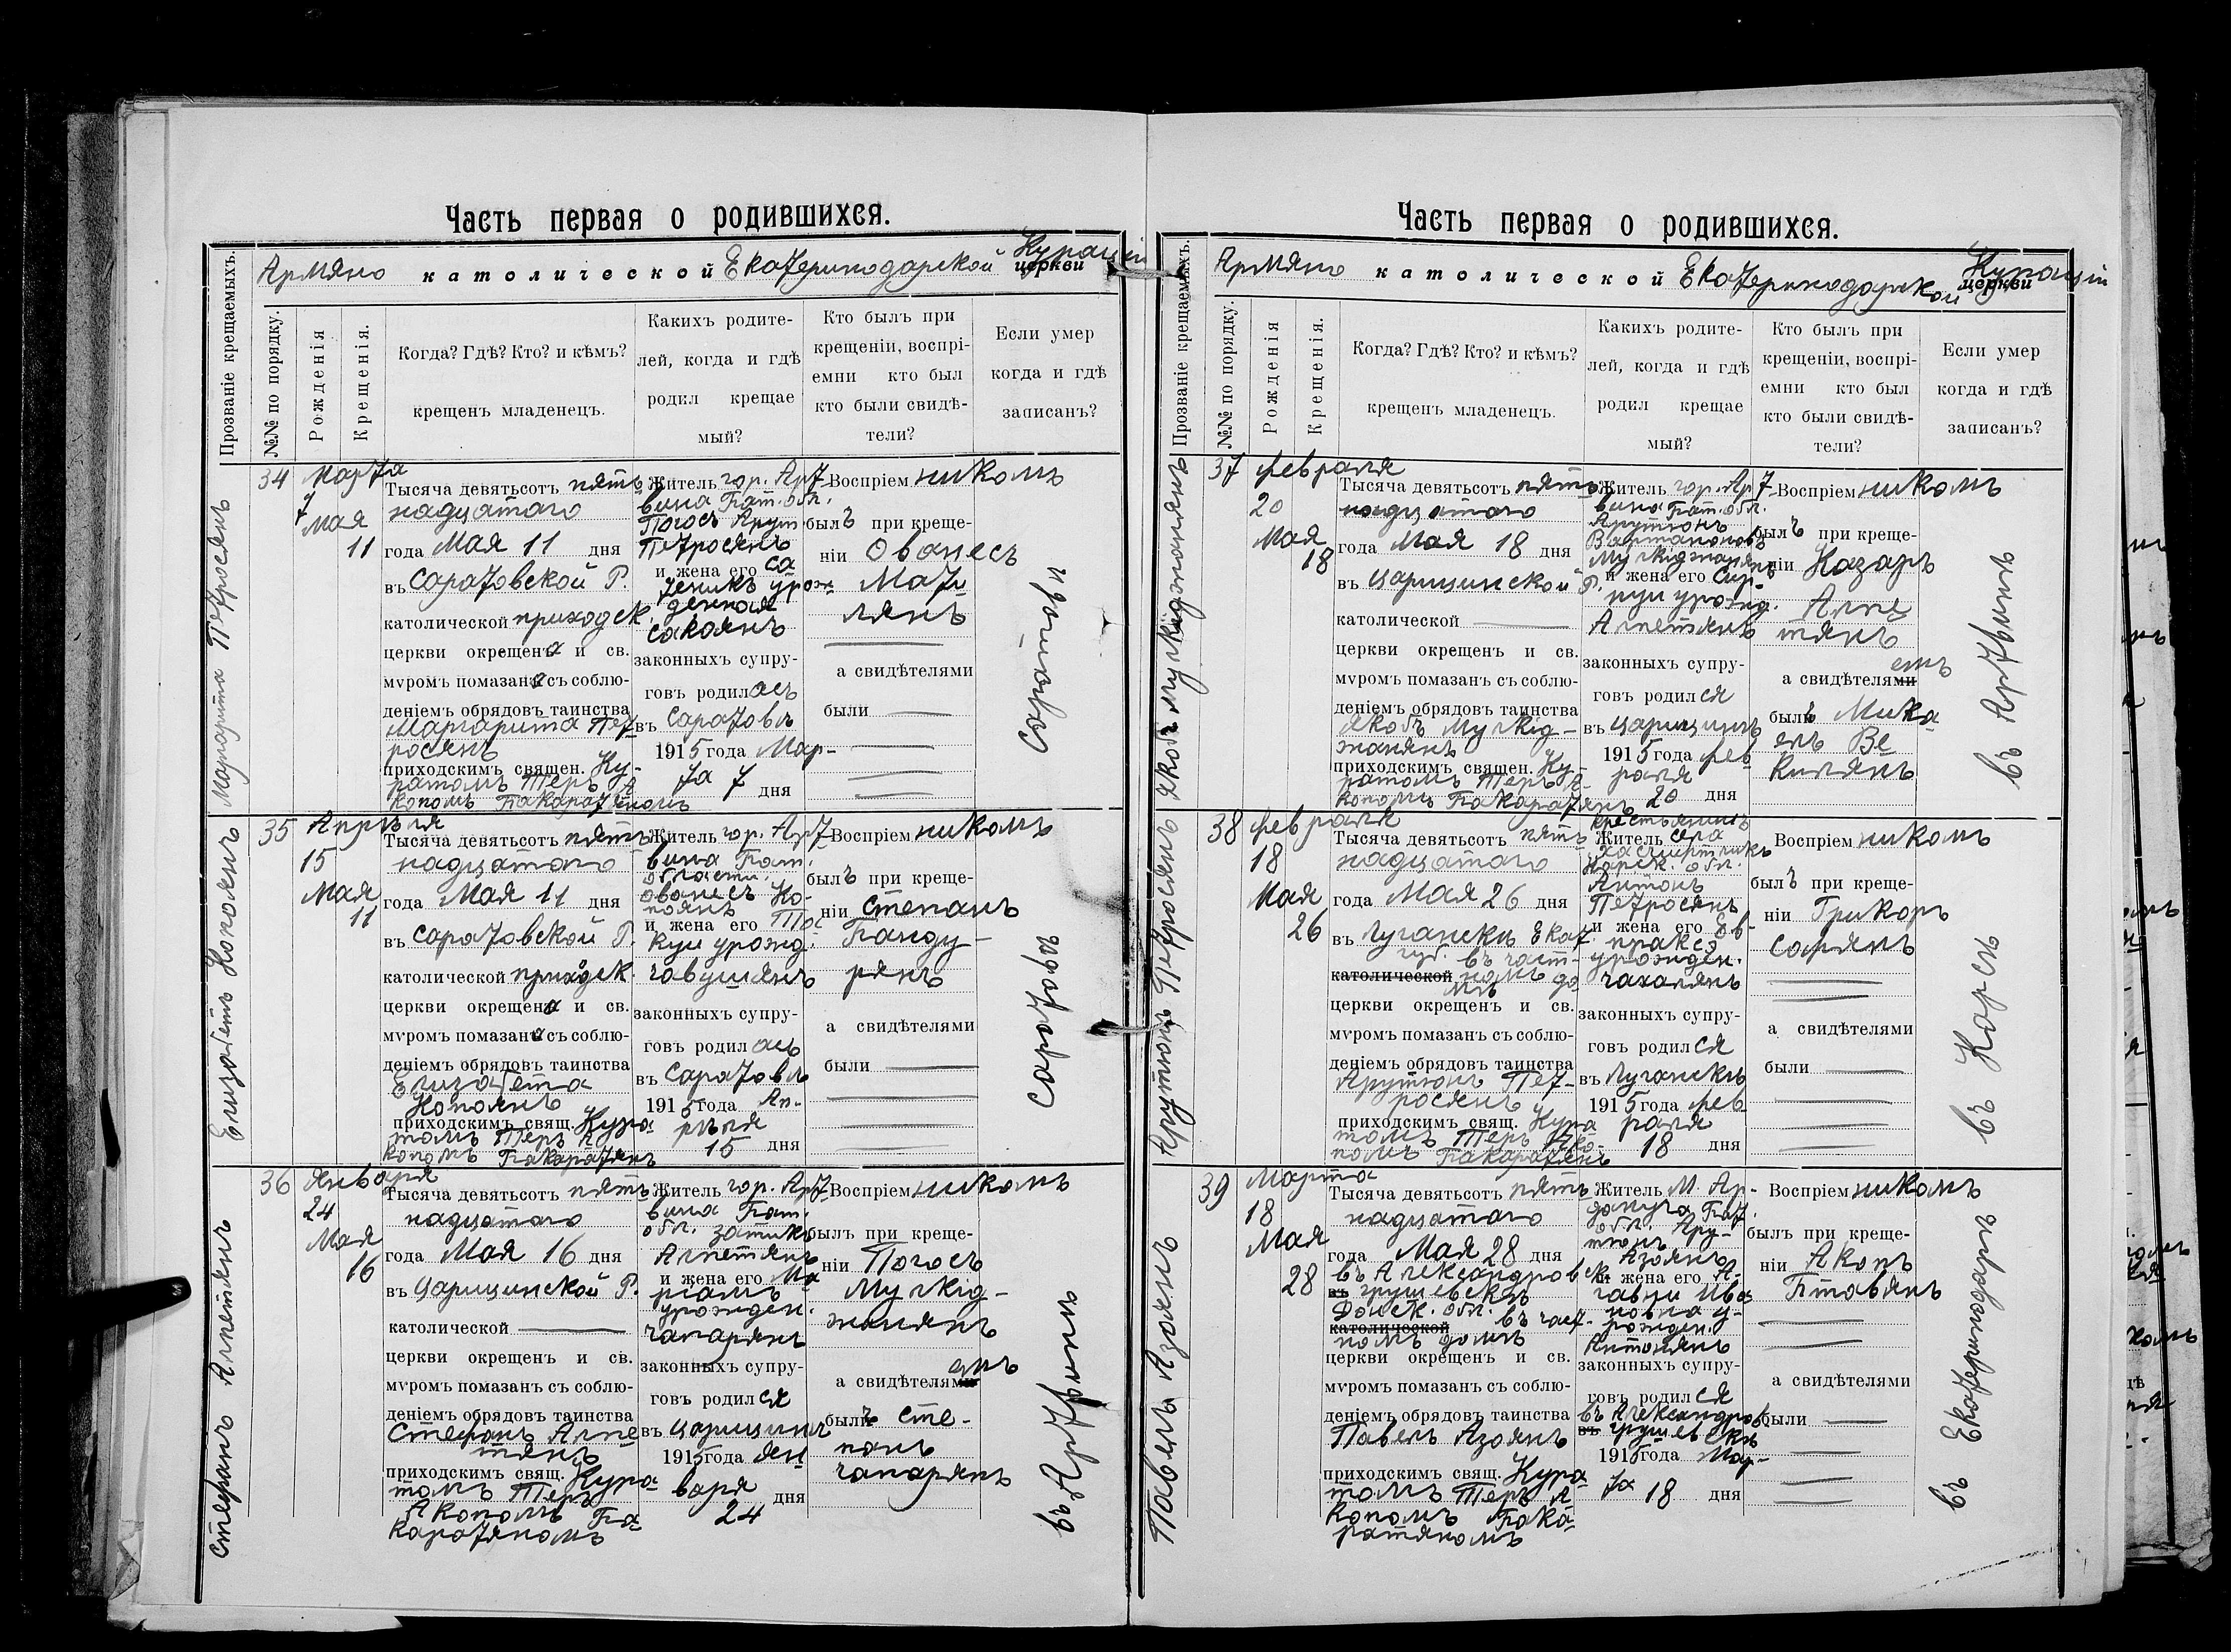 Часть первая о родившихся.
Армяно католической Екатеринодарской Курации церкви
Прозваніе крещаемыхъ.
№№ по порядку.
Рожденія
Крещенія.
Когда? Гдѣ? Кто? и кѣмъ?
крещенъ младенецъ.
Какихъ родите-
лей, когда и гдѣ
родил крещае
мый?
Кто былъ при
крещеніи, воспрі-
емни кто был
кто были свидѣ-
тели?
Если умер
когда и гдѣ
записанъ?
Маргарита Петросянъ
34
Марта
7
Мая
11
Тысяча девятьсотъ пять
надцатаго
года Мая 11 дня
въ Саратовской Р.
католической приходск.
церкви окрещена и св.
мѵромъ помазана съ соблю-
деніемъ обрядовъ таинства
Маргарита Пет-
росянъ
приходскимъ священ. Ку-
ратомъ Теръ А
копомъ Бакаратяномъ
Житель гор. Арт-
вина Бат. обл.
Погосъ Арут
Петросянъ
и жена его Са
теникъ урож-
денная
Сакаянъ
законныхъ супру-
говъ родилась
въ Саратовѣ
1915 года Мар-
та 7 дня
Воспріемникомъ
былъ при креще-
ніи Ованесъ
Мати
лянъ
а свидѣтелями
были
Саратовъ
Елизабетъ Кокоянъ
35
Апрѣля
15
Мая
11
Тысяча девятьсотъ пять
надцатаго
года Мая 11 дня
въ Саратовской Р.
католической приходск.
церкви окрещена и св.
мѵромъ помазана съ соблю-
деніемъ обрядовъ таинства
Елизабета
Копоянъ
приходскимъ свящ. Кура
томъ Теръ А
копомъ Бакаратянъ
Житель гор. Арт-
вина Бат.
области.
Ованесъ Ко-
поянъ
и жена его То
куи урожд.
Чавушянъ
законныхъ супру-
говъ родилась
въ Саратовѣ
1915 года Ап-
рѣля
15 дня
Воспріемникомъ
былъ при креще-
ніи Степанъ
Банду-
рянъ
а свидѣтелями
были
Саратовъ
Стефанъ Алпетянъ
36
Января
24
Мая
16
Тысяча девятьсотъ пять
надцатаго
года Мая 16 дня
въ Царицинской Р.
католической
церкви окрещенъ и св.
мѵромъ помазанъ съ соблю-
деніемъ обрядовъ таинства
Стефанъ Алпе
тянъ
приходскимъ свящ. Кура
томъ Теръ
Акопомъ Ба
каратяномъ
Житель гор. Арт-
вина Бат.
обл. Затикъ
Алпетянъ
и жена его Ма
ріамъ
урожден.
Чапарянъ
законныхъ супру-
говъ родился
въ Царицинѣ
1915 года Ян
варя дня
24
Воспріемникомъ
былъ при креще-
ніи Погосъ
Мучкид-
жанянъ
а свидѣтелемъ
былъ Сте-
панъ
Чапарянъ
въ Артвинъ
Часть первая о родившихся.
Армяно католической Екатеринодарской Курации церкви
Прозваніе крещаемыхъ.
№№ по порядку.
Рожденія
Крещенія.
Когда? Гдѣ? Кто? и кѣмъ?
крещенъ младенецъ.
Какихъ родите-
лей, когда и гдѣ
родил крещае
мый?
Кто былъ при
крещеніи, воспрі-
емни кто был
кто были свидѣ-
тели?
Если умер
когда и гдѣ
записанъ?
Якобъ Мучкиджанянъ
37
Февраля
20
Мая
18
Тысяча девятьсотъ пять
надцатаго
года Мая 18 дня
въ Царицинской Р.
католической
церкви окрещенъ и св.
мѵромъ помазанъ съ соблю-
деніемъ обрядовъ таинства
Якобъ Мучкид-
жанянъ
приходскимъ священ. Ку-
ратомъ Теръ А-
копомъ Бакаратянъ
Житель гор. Арт-
вина Бат. обл.
Арутюнъ
Вартановъ
Мучкиджанянъ
и жена его Сир-
пуи урожд.
Алпетянъ
законныхъ супру-
говъ родился
въ Царицинѣ
1915 года фев
раля
20 дня
Воспріемникомъ
былъ при креще-
ніи Казаръ
Алпе
тянъ
а свидѣтелемъ
былъ Мика
елъ Ве
килянъ
въ Артвинъ
Арутюнъ Петросянъ
38
Февраля
18
Мая
26
Тысяча девятьсотъ пять
надцатаго
года Мая 26 дня
въ Луганскѣ Екат.
губ. въ част-
католической номъ до
мѣ
церкви окрещенъ и св.
мѵромъ помазанъ съ соблю-
деніемъ обрядовъ таинства
Арутюнъ Пет-
росянъ
приходскимъ свящ. Кура
томъ Теръ Ако-
помъ Бакаратянъ
крестьянинъ
Житель села
Карск. обл.
Антонъ
Петросянъ
и жена его Ев-
праксэ
урожден.
Чахалянъ
законныхъ супру-
говъ родился
въ Луганскѣ
1915 года фев
раля
18 дня
Воспріемникомъ
былъ при креще-
ніи Григоръ
Сапянъ
а свидѣтелями
были
въ Карсъ
Павелъ Азоянъ
39
Марта
18
Мая
28
Тысяча девятьсотъ пять
надцатаго
года Мая 28 дня
въ Александровск.
въ грушевскѣ
Донск. обл. въ част-
католической
номъ домѣ
церкви окрещенъ и св.
мѵромъ помазанъ съ соблю-
деніемъ обрядовъ таинства
Павелъ Азоянъ
приходскимъ свящ. Кура
томъ Теръ А
копомъ Бака-
ратяномъ
Житель М. Ар-
дануча Бат.
обл. Ару-
тюнъ
Азоянъ
и жена его А-
гавни Ива
новна у-
рожден.
Антонянъ
законныхъ супру-
говъ родился
въ Александров
въ грушевскѣ
1915 года Мар-
та 18 дня
Воспріемникомъ
былъ при креще-
ніи Акопъ
Бтавянъ
а свидѣтелями
были
въ Екатеринодаръ